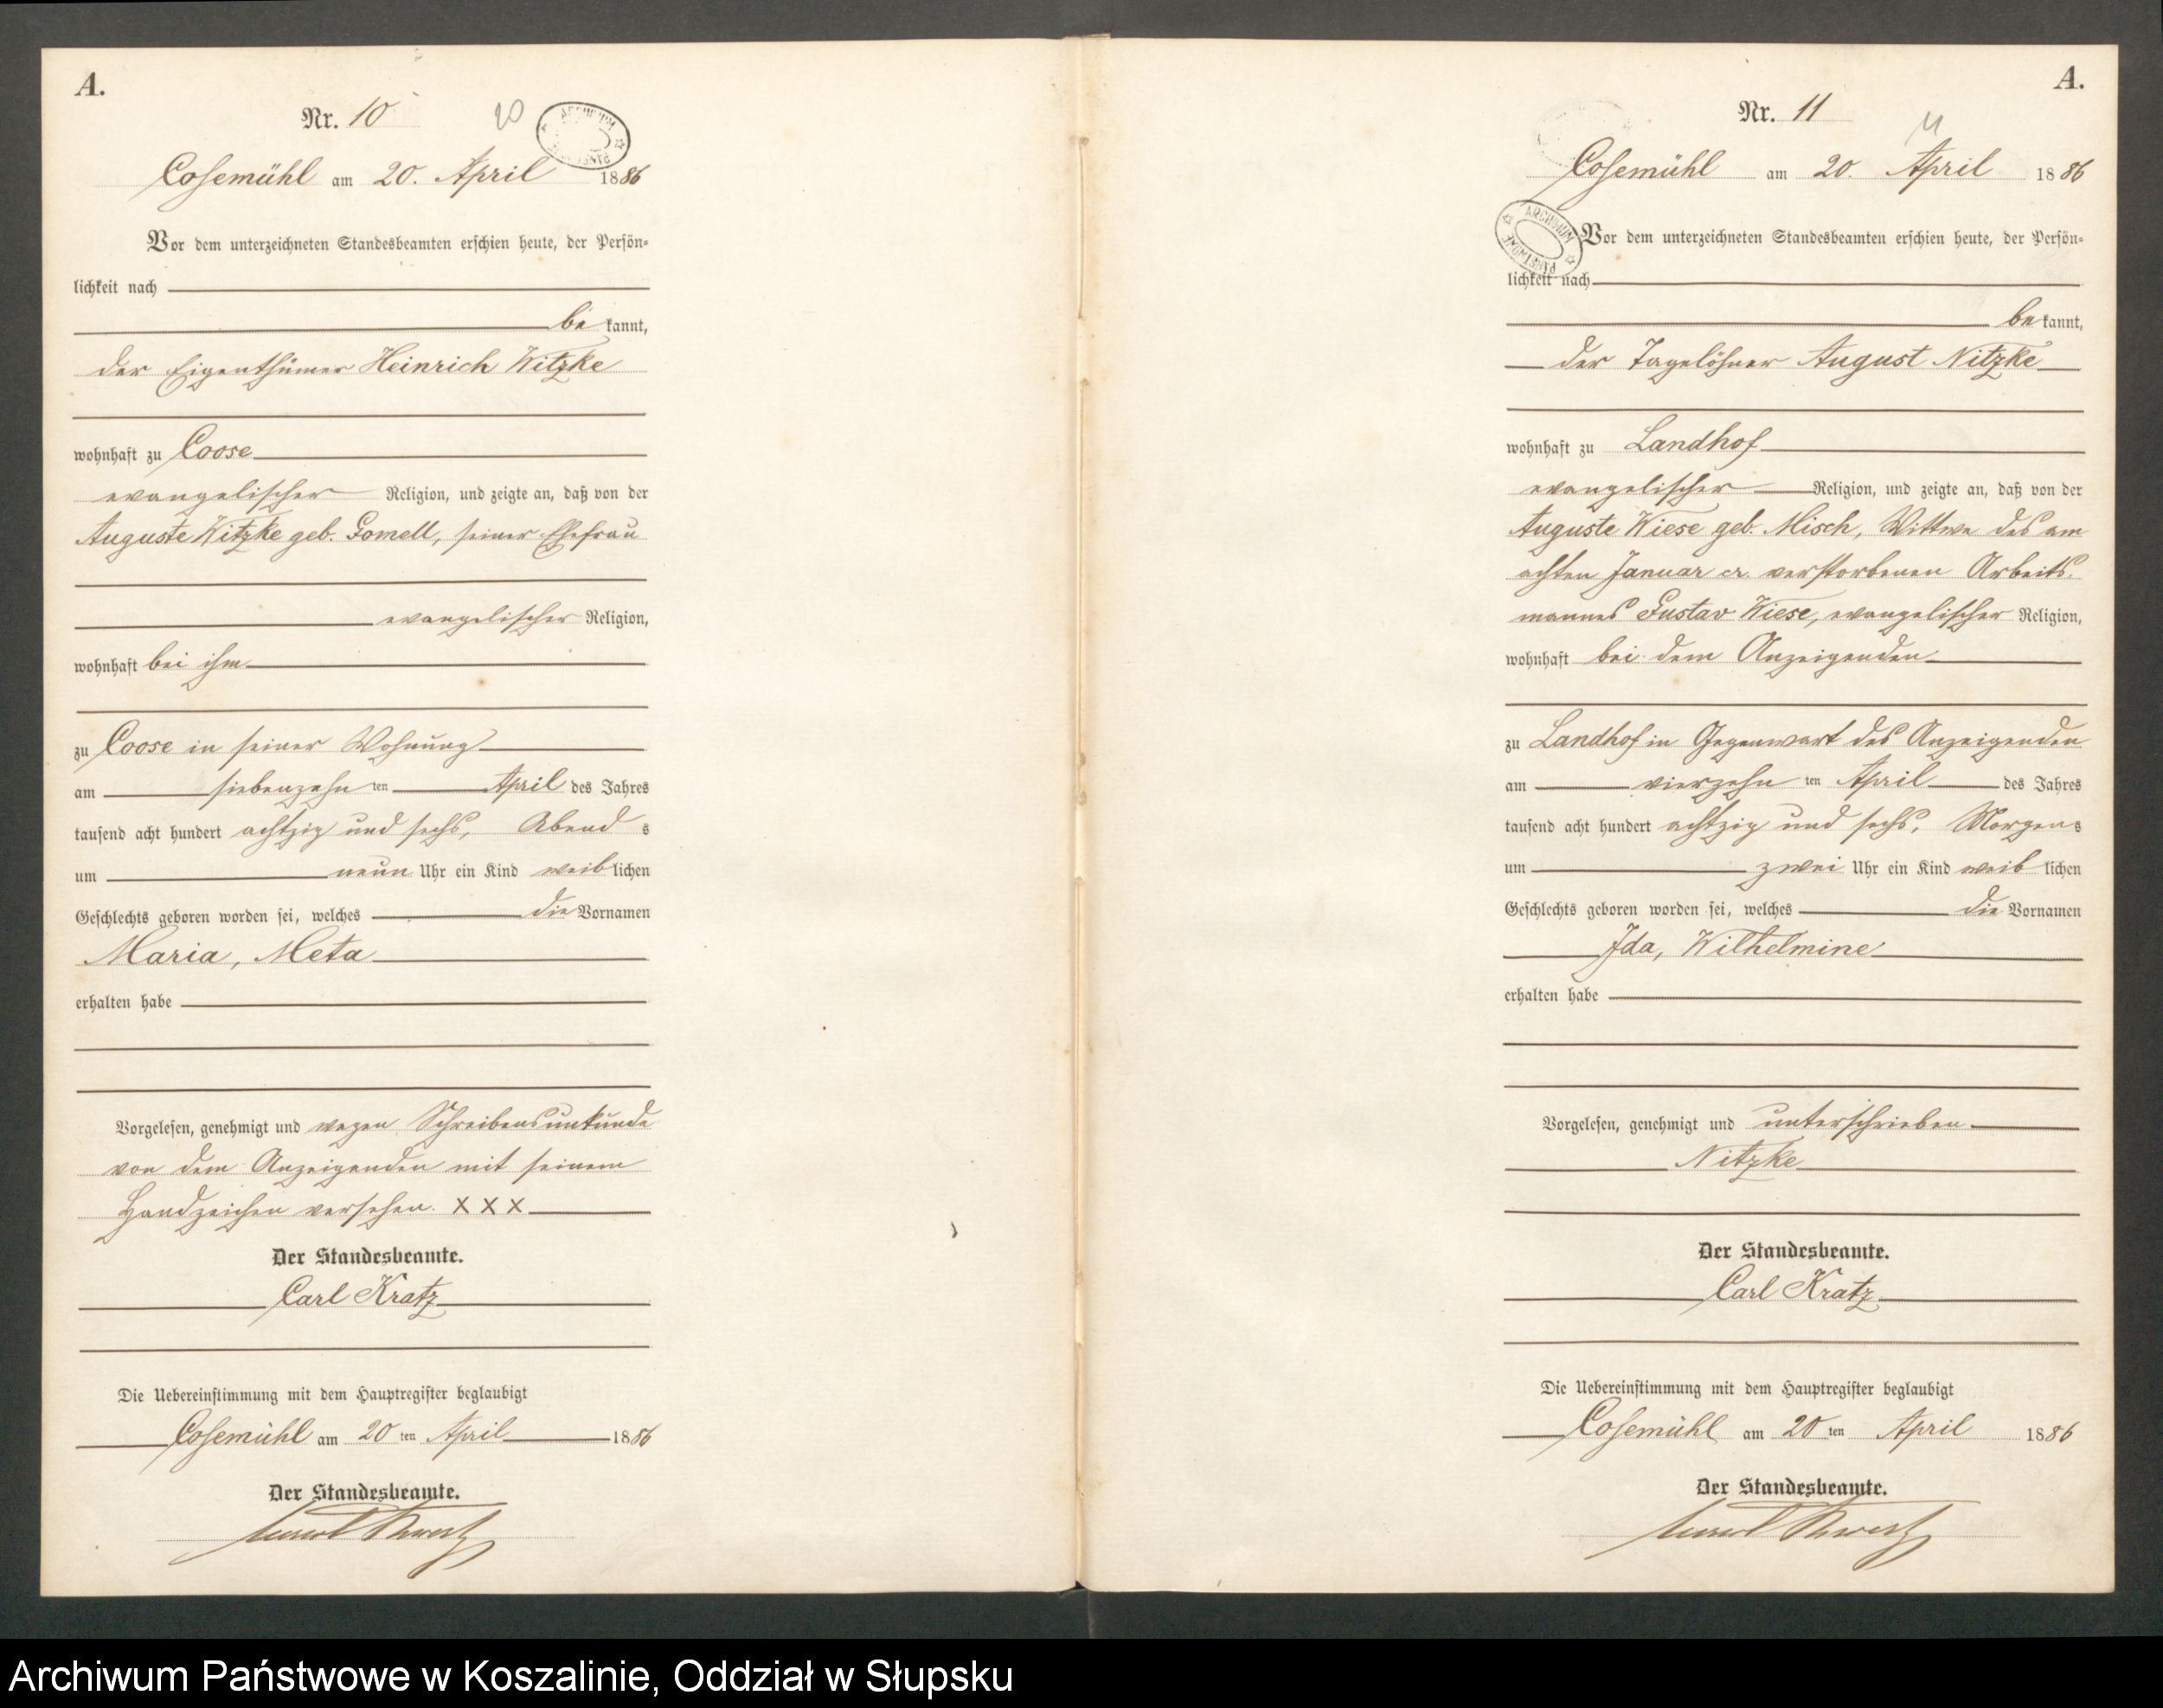 A.
Nr. 10
20
ARCHIWUM PAŃSTWOWE
Cosemühl am 20. April 1886
Vor dem unterzeichneten Standesbeamten erschien heute, der Persön=
lichkeit nach
bekannt,
der Eigenthümer Heinrich Witzke
wohnhaft zu Coose
evangelischer Religion, und zeigte an, daß von der
Auguste Witzke geb. Gomell, seiner Ehefrau
evangelischer Religion,
wohnhaft bei ihm
zu Coose in seiner Wohnung
am siebenzehn ten April des Jahres
tausend acht hundert achtzig und sechs, Abends
um neun Uhr ein Kind weiblichen
Geschlechts geboren worden sei, welches die Vornamen
Maria, Meta
erhalten habe
Vorgelesen, genehmigt und wegen Schreibensunkunde
von dem Anzeigenden mit seinem
Handzeichen versehen. X X X
Der Standesbeamte.
Carl Kratz
Die Uebereinstimmung mit dem Hauptregister beglaubigt
Cosemühl am 20 ten April 1886
Der Standesbeamte.
A.
Nr. 11
11
Cosemühl am 20. April 1886
ARCHIWUM PAŃSTWOWE
Vor dem unterzeichneten Standesbeamten erschien heute, der Persön=
lichkeit nach
bekannt,
der Tagelöhner August Nitzke
wohnhaft zu Landhof
evangelischer Religion, und zeigte an, daß von der
Auguste Wiese geb. Misch, Wittwe des am
achten Januar cr. verstorbenen Arbeits-
mannes Gustav Wiese, evangelischer Religion,
wohnhaft bei dem Anzeigenden
zu Landhof in Gegenwart des Anzeigenden
am vierzehn ten April des Jahres
tausend acht hundert achtzig und sechs, Morgens
um zwei Uhr ein Kind weiblichen
Geschlechts geboren worden sei, welches die Vornamen
Ida, Wilhelmine
erhalten habe
Vorgelesen, genehmigt und unterschrieben
Nitzke
Der Standesbeamte.
Carl Kratz
Die Uebereinstimmung mit dem Hauptregister beglaubigt
Cosemühl am 20 ten April 1886
Der Standesbeamte.
Archiwum Państwowe w Koszalinie, Oddział w Słupsku